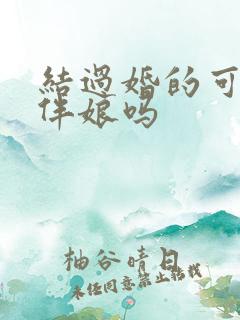 結過婚的可
伴娘吗
柚谷晴日
未经同意禁止转载